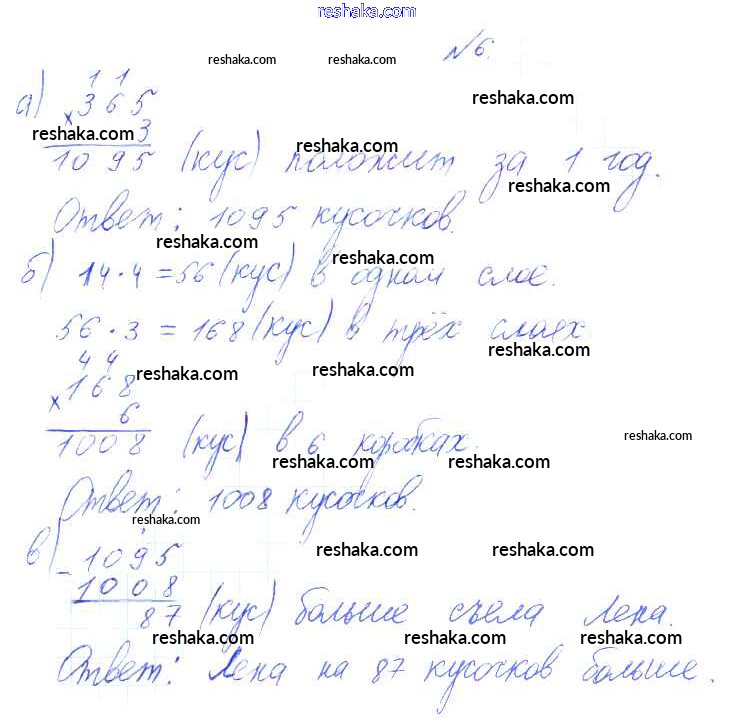 reshaka.com
№6.
reshaka.com reshaka.com
а) 1 1
× 365
reshaka.com
reshaka.com 3
reshaka.com
1095 (кус) положит за 1 год.
reshaka.com
Ответ: 1095 кусочков.
reshaka.com
б) 14·4=56 (кус) в одном слое.
reshaka.com
56·3=168 (кус) в трёх слоях
4 4
× 168
reshaka.com reshaka.com reshaka.com
6
1008 (кус) в 6 коробках.
reshaka.com
reshaka.com reshaka.com
Ответ: 1008 кусочков.
reshaka.com
в) - 1095
reshaka.com reshaka.com
1008
87 (кус) больше съела Лена.
reshaka.com reshaka.com reshaka.com
Ответ: Лена на 87 кусочков больше.